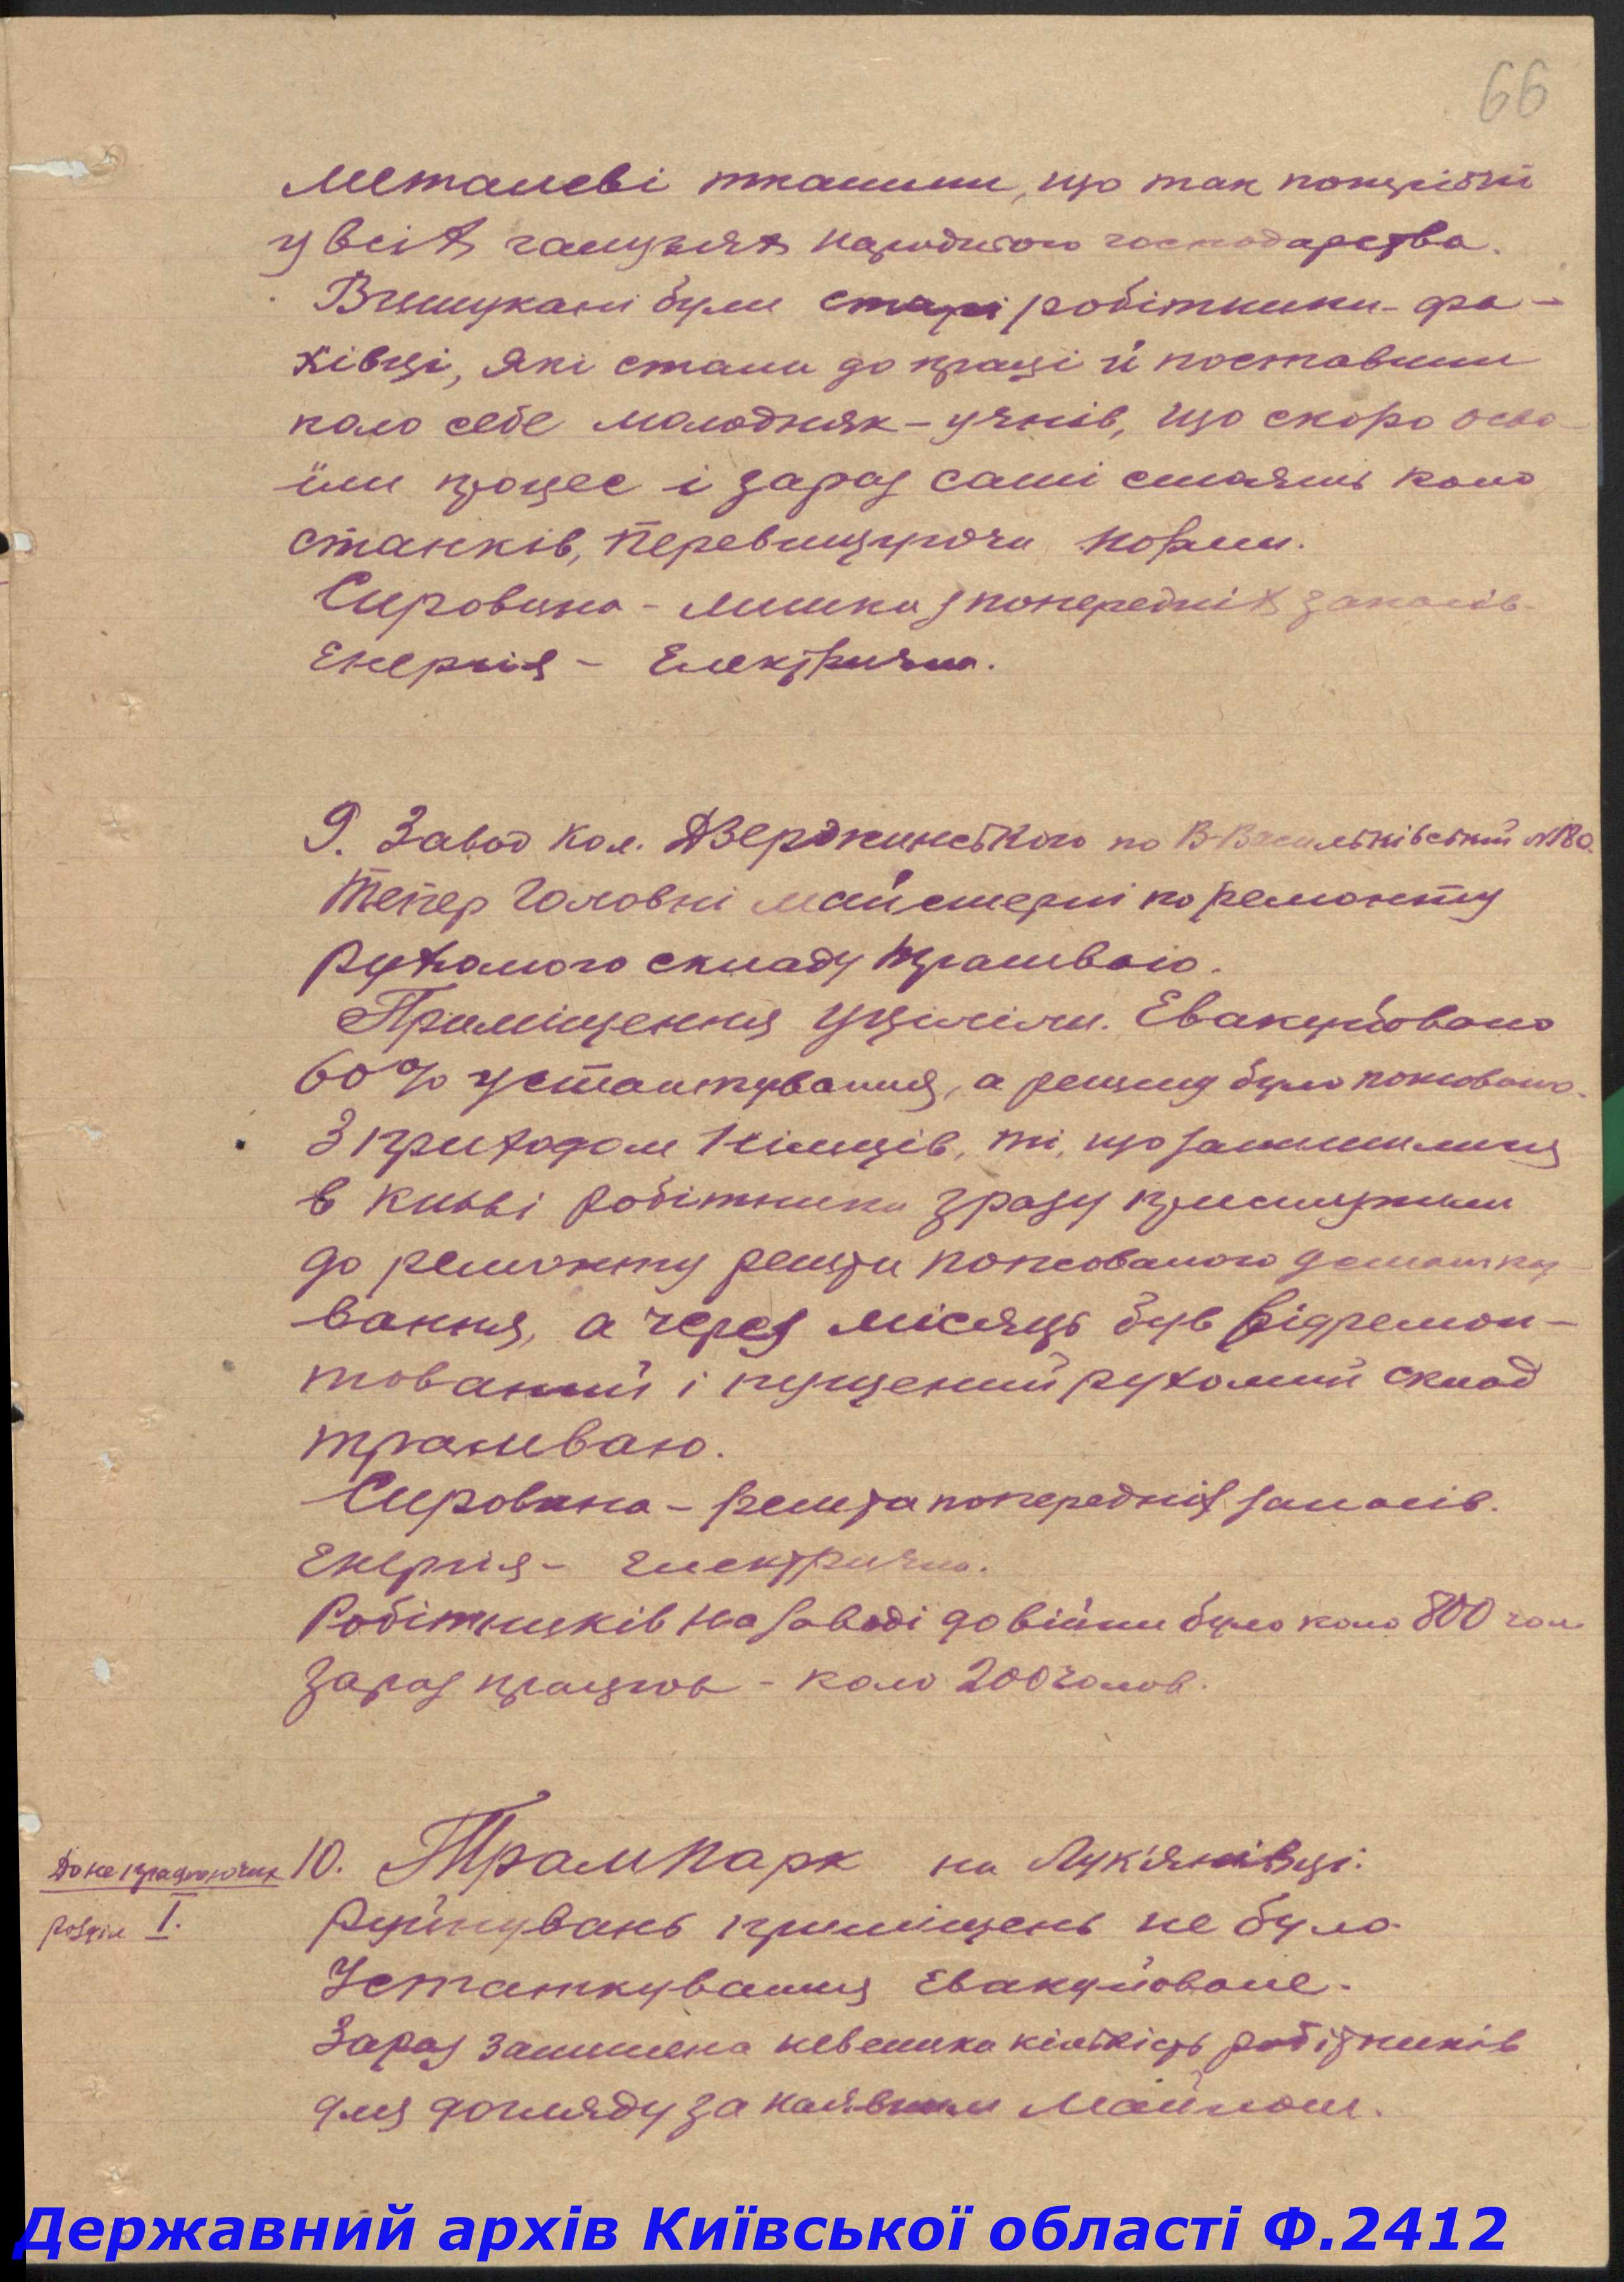 66
металеві тканини, що так потрібні
у всіх галузях народного господарства.
Вишукані були старі робітники-фа-
хівці, які стали до праці й поставили
коло себе молодняк-учнів, що скоро осво-
їли процес і зараз самі стоять коло
станків, перевищуючи норми.
Сировина - лишки з попередніх запасів.
Енергія - Електрична.
9. Завод кол. Дзержинського по В-Васильківській
Тепер Головні майстерні по ремонту
рухомого складу трамваю.
Приміщення уціліли. Евакуйовано
60% устаткування, а решту було попсовано.
З приходом німців, ті, що залишились
в Києві робітники зразу приступили
до ремонту решти попсованого устатку-
вання, а через місяць був відремон-
тований і пущений рухомий склад
трамваю.
Сировина - решта попередніх запасів.
Енергія - електрична.
Робітників на заводі до війни було коло 800 чол.
Зараз працює - коло 200 чолов.
До не працюючих
розділ I.
10. Трампарк на Лук'янівці.
Руйнувань приміщень не було.
Устаткування евакуйоване.
Зараз залишена невелика кількість робітників
для догляду за наявним майном.
Державний архів Київської області Ф.2412